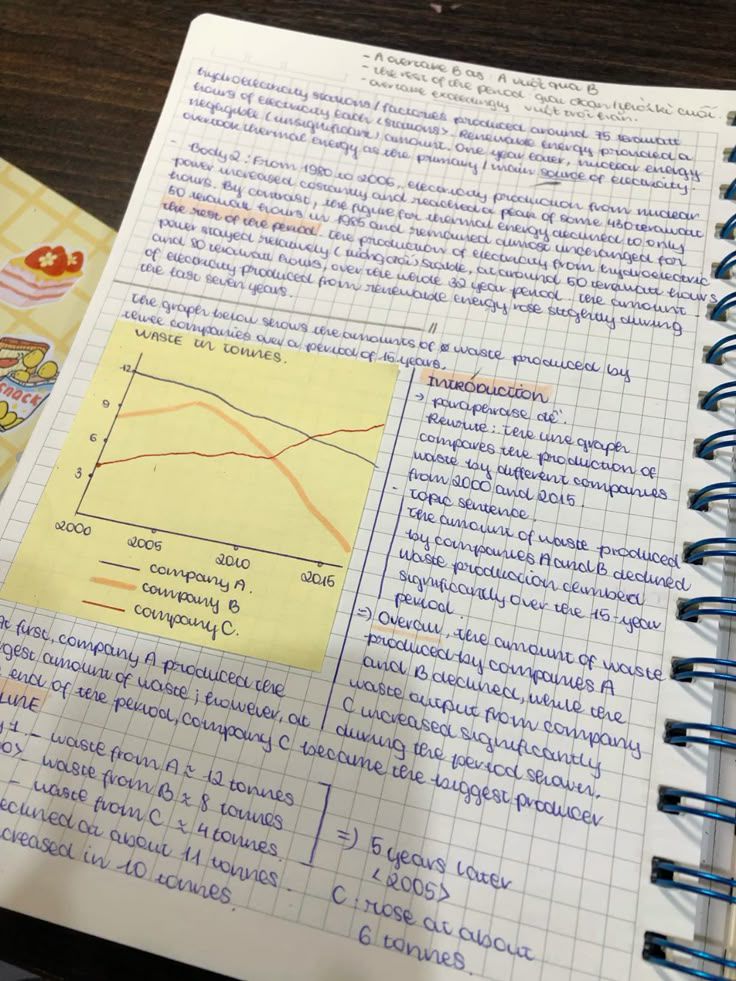 - A overtake B as : A vượt qua B
- the rest of the period giai đoạn cuối.
- overtake exceedingly vượt trội hơn.
hydroelectricity stations / factories produced around 75 terawatt
hours of electricity each <stations>. Renewable energy provided a
negligible (insignificant) amount. One year later, nuclear energy
overtook thermal energy as the primary / main source of electricity.
- Body 2 : From 1980 to 2005, electricity production from nuclear
power increased constantly and reached a peak of some 430 terawatt
hours. By contrast, the figure for thermal energy declined to only
50 terawatt hours in 1985 and remained almost unchanged for
the rest of the period. The production of electricity from hydroelectric
power stayed relatively (tương đối) stable, at around 50 terawatt hours
and 80 terawatt hours, over the whole 32 year period. The amount
of electricity produced from renewable energy rose slightly during
the last seven years.
The graph below shows the amounts of waste produced by
three companies over a period of 15 years.
WASTE IN TONNES.
12
9
6
3
2000
2005
2010
2015
company A.
company B
company C.
Introduction
→ paraphrase đề.
Rewrite : The line graph
compares the production of
waste by different companies
from 2000 and 2015.
- topic sentence.
The amount of waste produced
by companies A and B declined
waste production climbed
significantly over the 15-year
period.
=> Overall, the amount of waste
produced by companies A
and B declined, while the
waste output from company
C increased significantly
during the period shown.
At first, company A produced the
gest amount of waste ; however, at
end of the period, company C became the biggest producer
LINE
y 1 - waste from A ≈ 12 tonnes
00> - waste from B ≈ 8 tonnes
- waste from C ≈ 4 tonnes.
eclined at about 11 tonnes
creased in 10 tonnes.
=> 5 years later
<2005>
C : rose at about
6 tonnes.